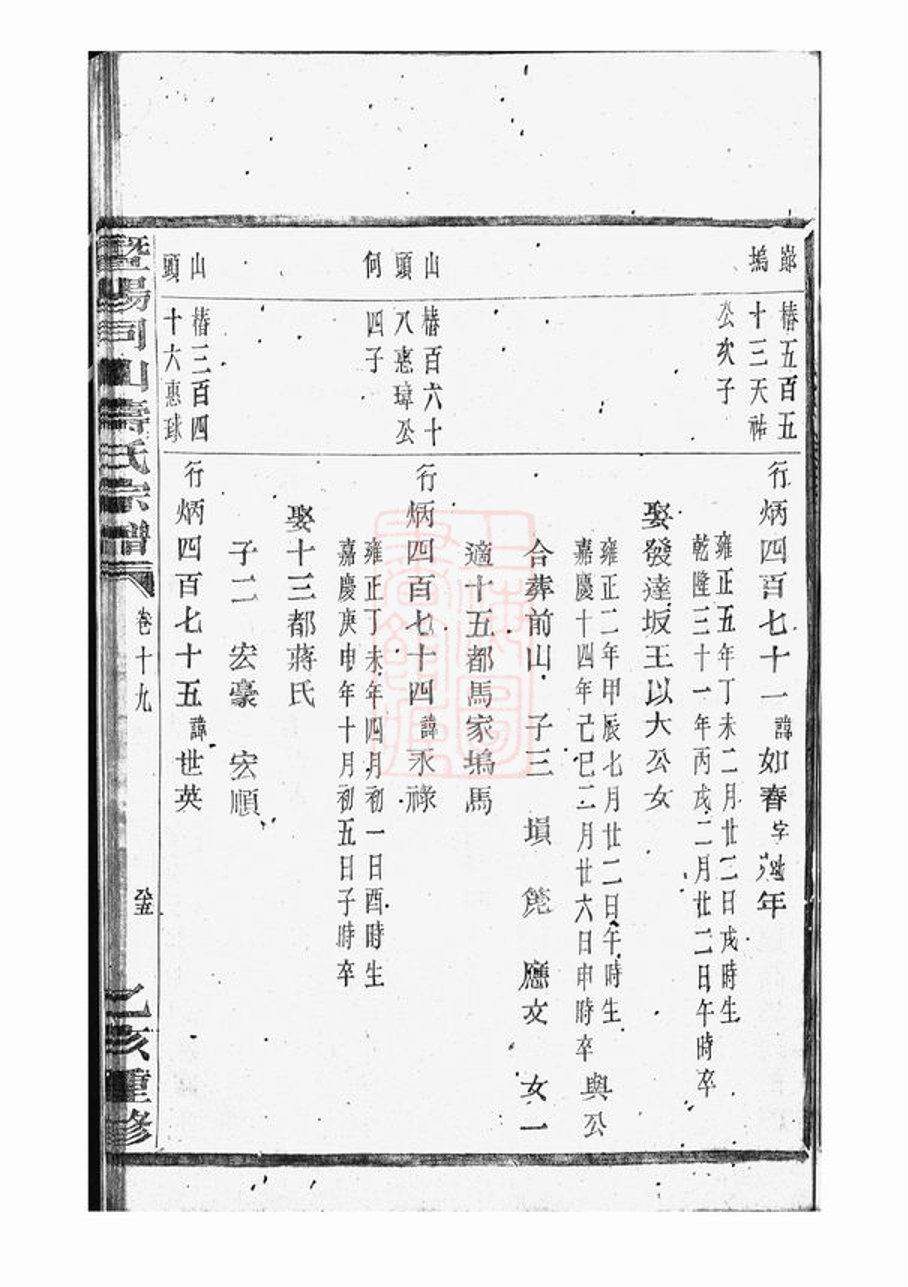 塢
椿五百五
十三天祐
公次子
行炳四百七十一諱如春字年
雍正五年丁未二月廿二日戌時生
乾隆三十一年丙戌二月廿二日午時卒
娶發達坂王以大公女
雍正二年甲辰七月廿二日午時生
嘉慶十四年己巳二月廿六日申時卒
與公
合葬前山 子三 塤 箎 應文 女一
適十五都馬家塢馬
山
頭
何
椿百六十
八惠璋公
四子
行炳四百七十四諱永祿
雍正丁未年四月初一日酉時生
嘉慶庚申年十月初五日子時卒
娶十三都蔣氏
子二 宏豪 宏順
山
頭
椿三百四
十六惠球
行炳四百七十五諱世英
暨陽同山壽氏宗譜
卷十九
乙亥重修